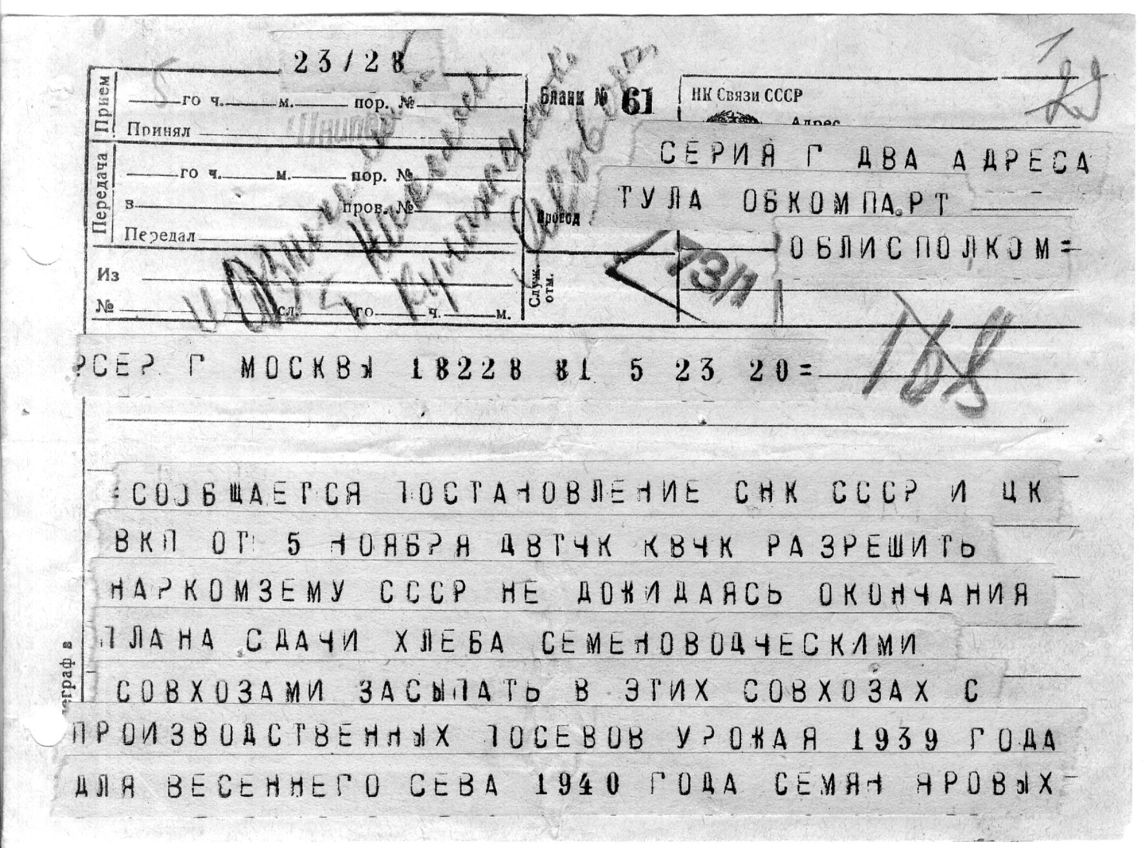 23/28
Прием
го ч. м. пор. №
Принял
Бланк № 61
НК Связи СССР
Адрес
22
Передача
го ч. м. пор. №
в пров. №
Передал
Провод
СЕРИЯ Г ДВА АДРЕСА
ТУЛА ОБКОМПАРТ
ОБЛИСПОЛКОМ=
Из
№ сл. го ч. м.
Служ. отм.
73/1
168
РСЕР Г МОСКВЫ 18228 81 5 23 20=
=СООБЩАЕТСЯ ПОСТАНОВЛЕНИЕ СНК СССР И ЦК
ВКП ОТ 5 НОЯБРЯ ДВТЧК КВЧК РАЗРЕШИТЬ
НАРКОМЗЕМУ СССР НЕ ДОЖИДАЯСЬ ОКОНЧАНИЯ
ПЛАНА СДАЧИ ХЛЕБА СЕМЕНОВОДЧЕСКИМИ
СОВХОЗАМИ ЗАСЫПАТЬ В ЭТИХ СОВХОЗАХ С
ПРОИЗВОДСТВЕННЫХ ПОСЕВОВ УРОЖАЯ 1939 ГОДА
ДЛЯ ВЕСЕННЕГО СЕВА 1940 ГОДА СЕМЯН ЯРОВЫХ